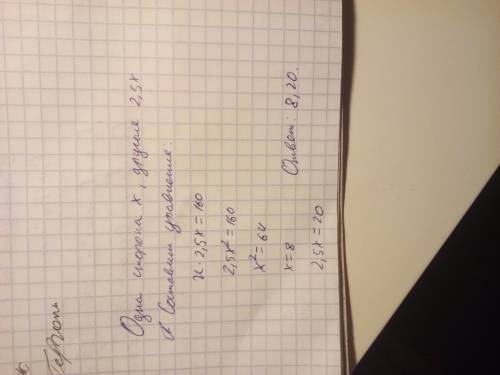 Одна сторона x, другая 2,5x
Составим уравнение:
x · 2,5x = 160
2,5x² = 160
x² = 64
x = 8 Ответ: 8, 20.
2,5x = 20